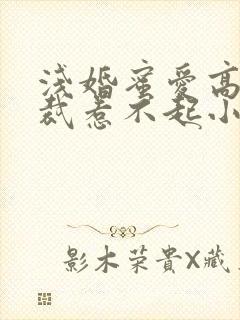 浅婚蜜愛高
裁惹不起小
影木荣貴X藏